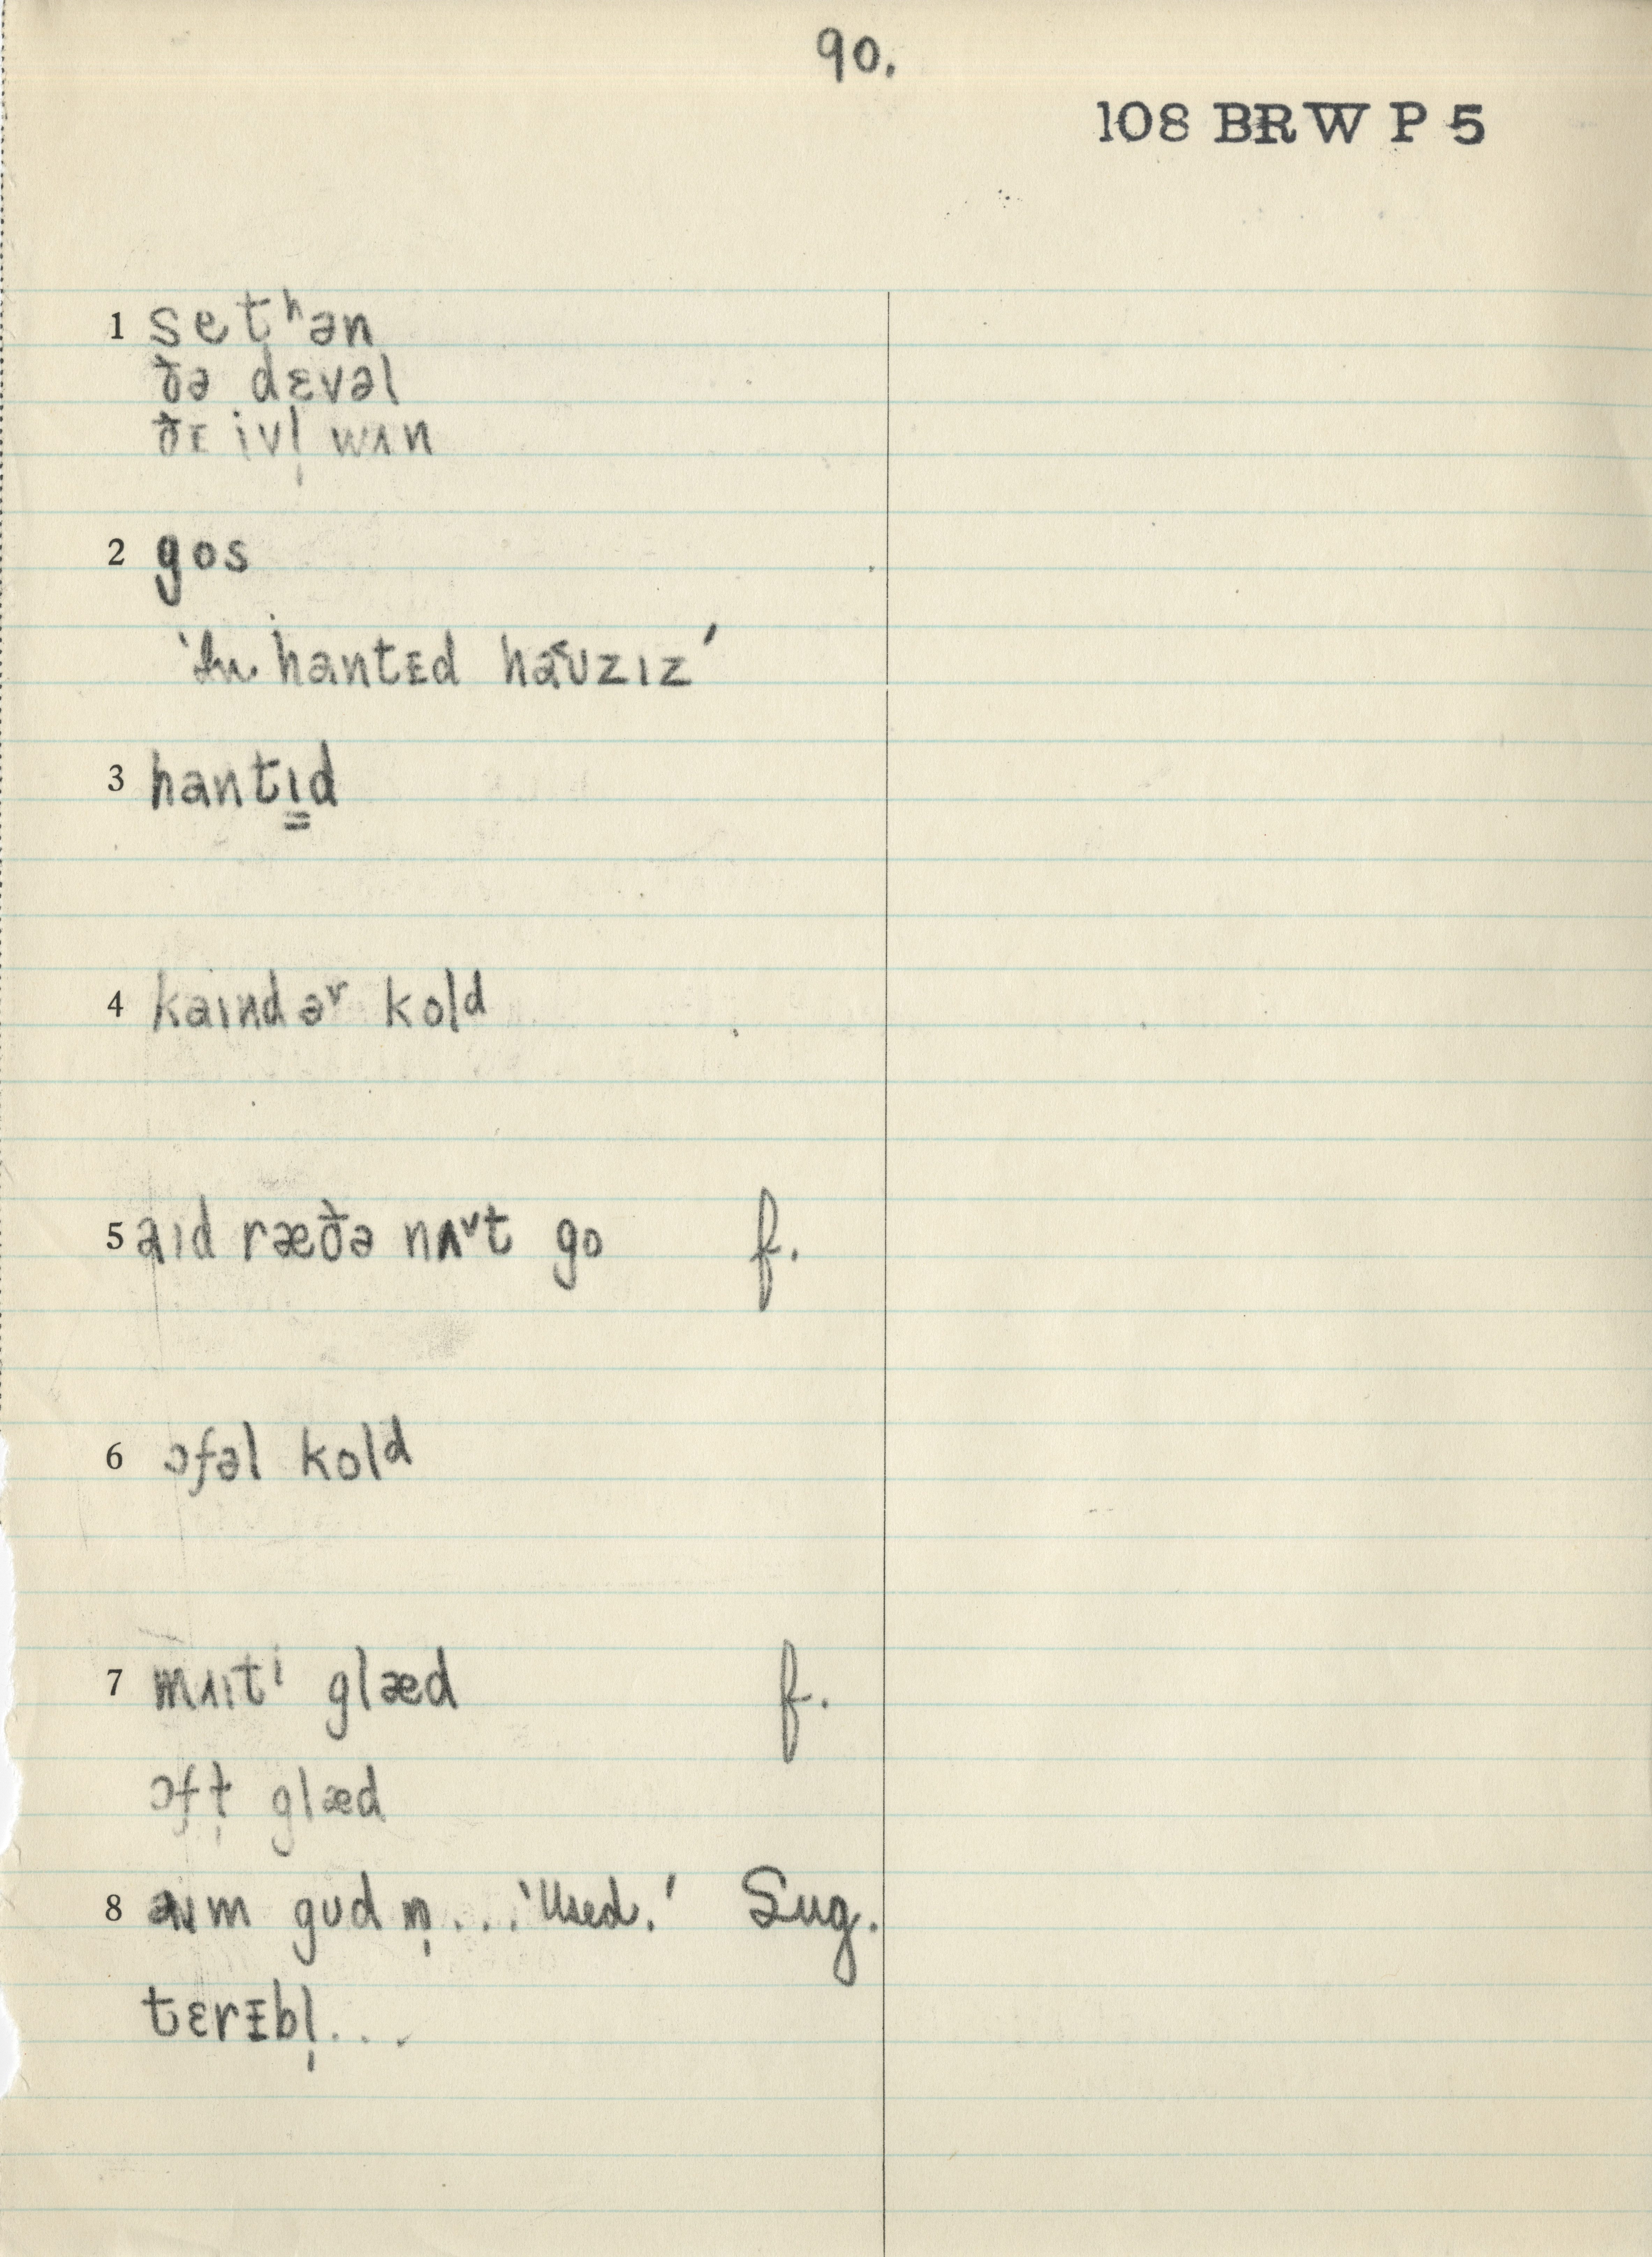 90.
108 BRW P 5
1 setʰən
ðə dɛvəl
ðɪ ivl̩ wʌn
2 gos
'In hantɪd haʊzɪz'
3 hantɪd
4 kaɪndəʳ kold
5 aɪd ræðə nʌ˅t go f.
6 ɔfəl kold
7 mʌɪtⁱ glæd f.
ɔft̩ glæd
8 aɪm gʊd n̩... 'Used.' Sug.
tɛrɪbl̩...